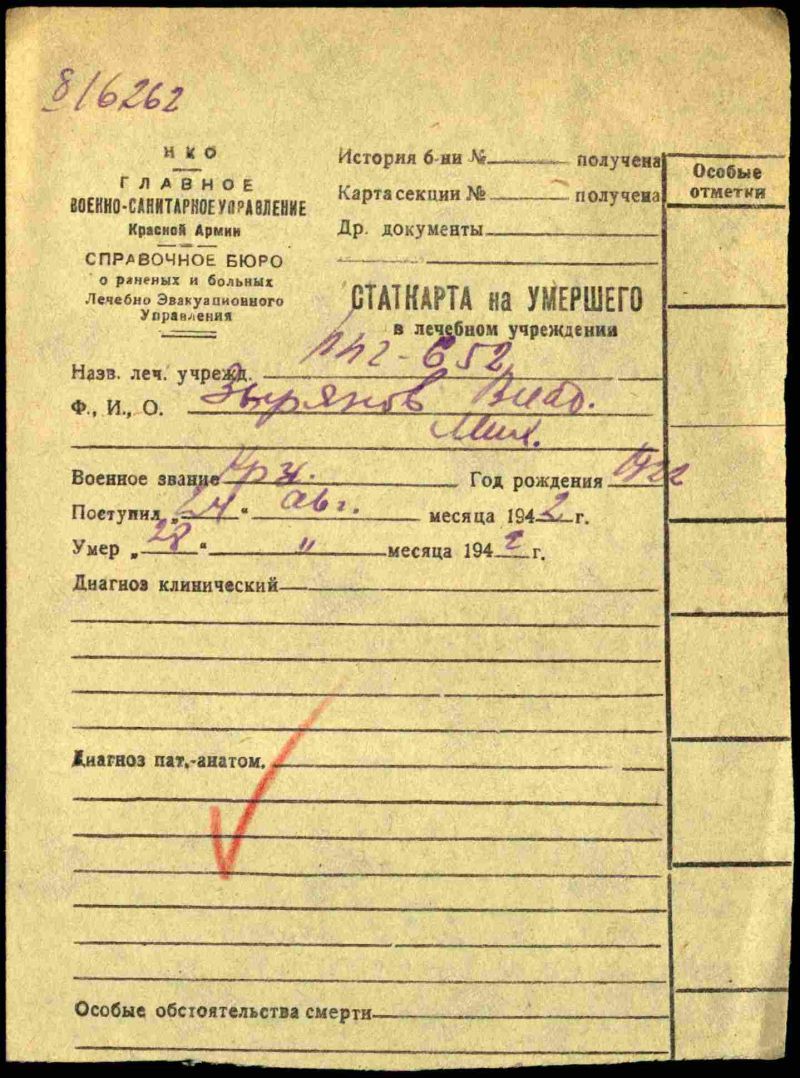 8/6262
НКО
ГЛАВНОЕ
ВОЕННО-САНИТАРНОЕ УПРАВЛЕНИЕ
Красной Армии
СПРАВОЧНОЕ БЮРО
о раненых и больных
Лечебно Эвакуационного
Управления
История б-ни № получена
Карта секции № получена
Др. документы
Особые
отметки
СТАТКАРТА на УМЕРШЕГО
в лечебном учреждении
Назв. леч. учрежд. ППГ-652
Ф., И., О. Зырянов Влад.
Мих.
Военное звание Кр-ц. Год рождения 1922
Поступил „24“ авг. месяца 1942 г.
Умер „28“ " месяца 1942 г.
Диагноз клинический
Диагноз пат.-анатом.
Особые обстоятельства смерти